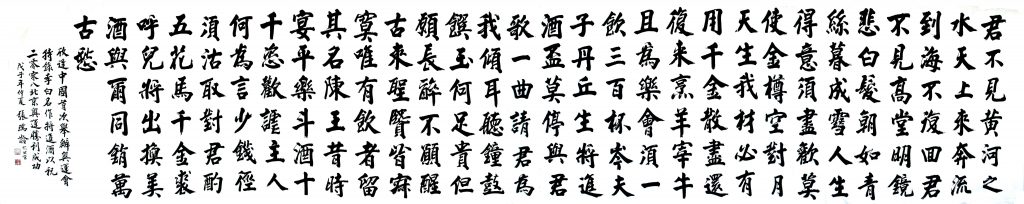 君不見黄河之
水天上來奔流
到海不復回君
不見高堂明鏡
悲白髮朝如青
絲暮成雪人生
得意須盡歡莫
使金樽空對月
天生我材必有
用千金散盡還
復來烹羊宰牛
且為樂會須一
飲三百杯岑夫
子丹丘生將進
酒盃莫停與君
歌一曲請君為
我傾耳聽鐘鼓
饌玉何足貴但
願長醉不願醒
古來聖賢皆寂
寞唯有飲者留
其名陳王昔時
宴平樂斗酒十
千恣歡謔主人
何為言少錢徑
須沽取對君酌
五花馬千金裘
呼兒將出換美
酒與爾同銷萬
古愁
欣逢中國首次舉辦奧運會
特錄李白名作將進酒以祝
二零零八北京奧運勝利成功
戊子年仲夏 張瑞齡